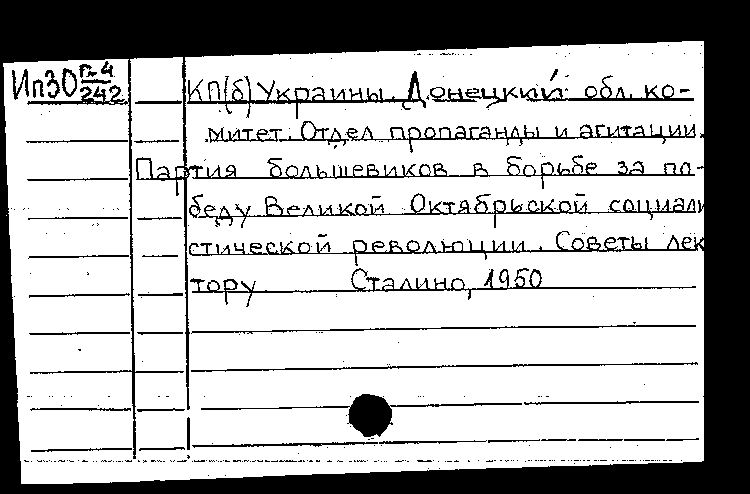 Ип30 п-4/242
КП(б) Украины. Донецкий обл. ко-
митет. Отдел пропаганды и агитации.
Партия большевиков в борьбе за по-
беду Великой Октябрьской социали
стической революции. Советы лек
тору Сталино, 1950